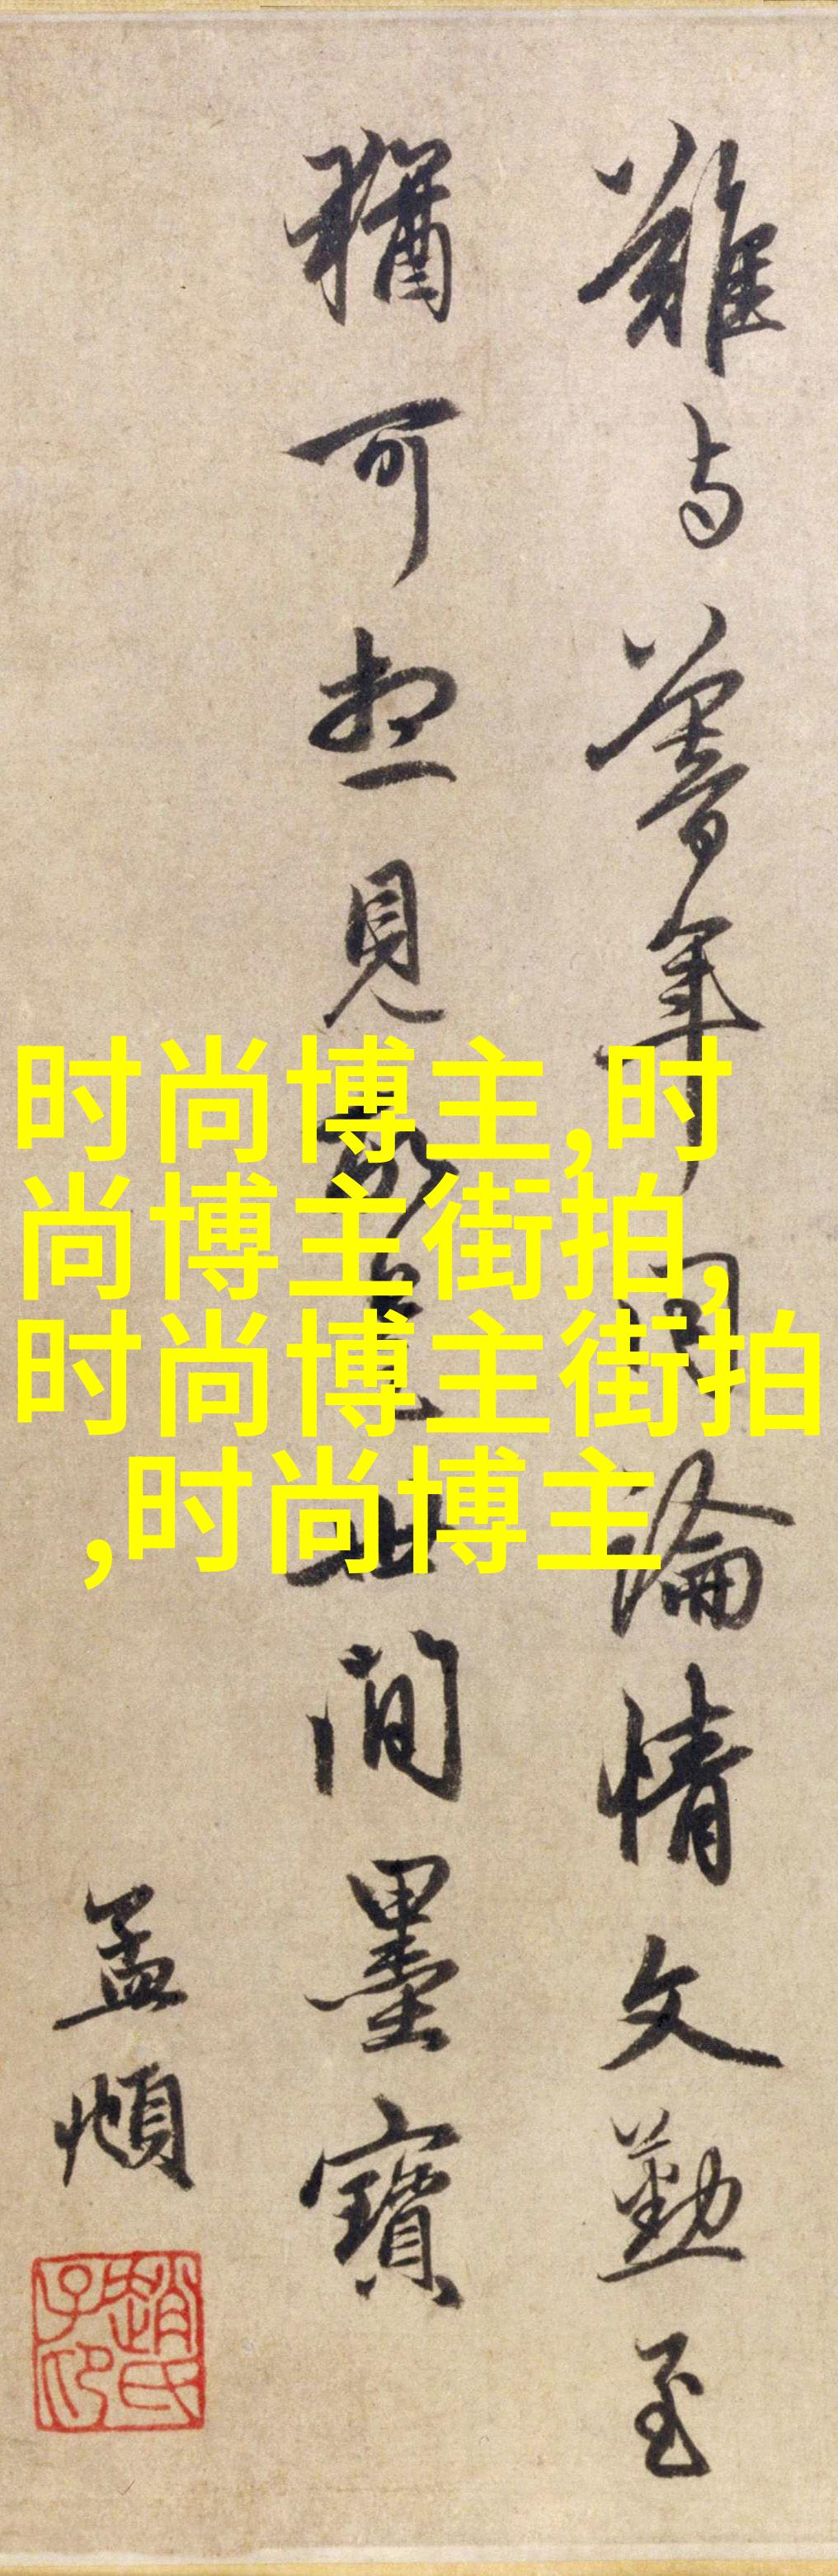 難与暮年同論情文勤至
猶可想見故是世間墨寶
孟頫
趙氏子昂
时尚博主,时
尚博主街拍,
时尚博主街拍
,时尚博主